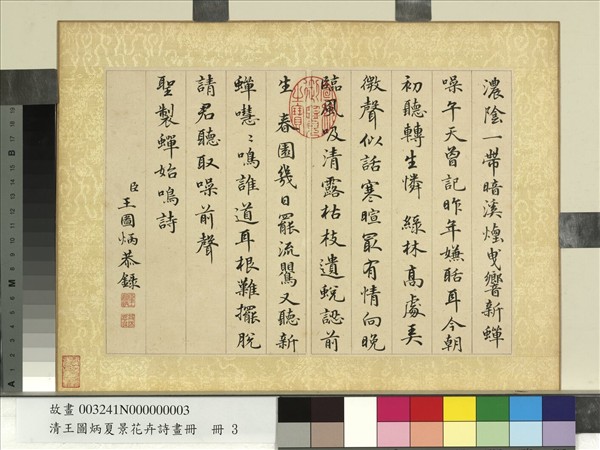 濃陰一帶暗溪煙曳響新蟬
噪午天曾記昨年嫌聒耳今朝
初聽轉生憐 綠林高處
微聲似話寒暄最有情向晚
臨風吸清露枯枝遺蛻認前
生 春園幾日罷流鶯又聽新
蟬嘒〻鳴誰道耳根難擺脫
請君聽取噪前聲
聖製蟬始鳴詩
臣王圖炳恭錄
故畫 003241N000000003
清王圖炳夏景花卉詩畫冊 冊 3